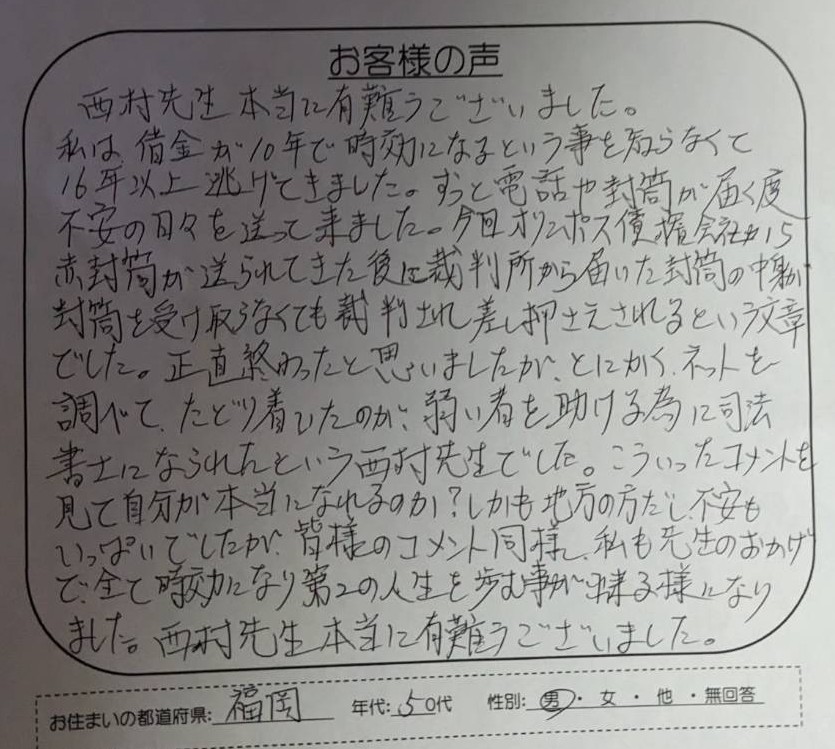 お客様の声
西村先生本当に有難うございました。
私は、借金が10年で時効になるという事を知らなくて
16年以上逃げてきました。ずっと電話や封筒が届く度
不安の日々を送って来ました。今回オリンポス債権会社から
赤封筒が送られてきた後に裁判所から届いた封筒の中身が
封筒を受け取らなくても裁判され差し押さえされるという文章
でした。正直終わったと思いましたが、とにかく、ネットを
調べて、たどり着いたのが、弱い者を助ける為に司法
書士になられたという西村先生でした。こういったコメントを
見て自分が本当になれるのか?しかも地方の方だし、不安も
いっぱいでしたが、皆様のコメント同様、私も先生のおかげ
で、全て時効になり第2の人生を歩む事が出来る様になり
ました。西村先生本当に有難うございました。
お住まいの都道府県: 福岡 年代: 50代 性別: 男・女・他・無回答